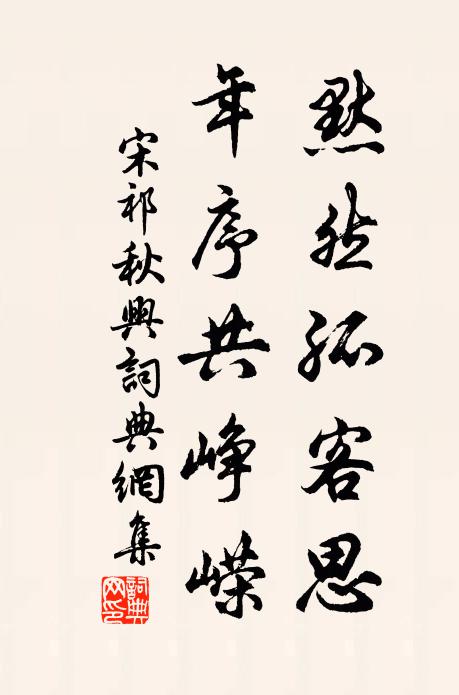 默然孤客思
年序共崢嶸
宋祁秋興詞典網集
詞典網印